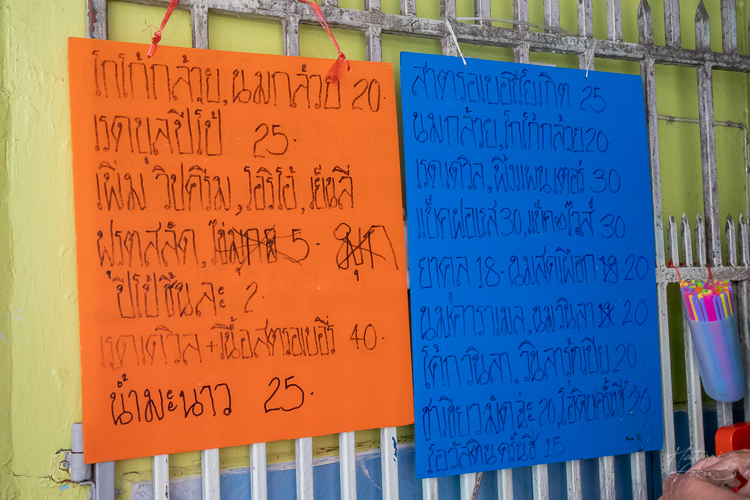 โกโก้กล้วย, นมกล้วย 20
เรดบูลปีโป้ 25.
เพิ่ม วิปครีม, โอริโอ้, เยลลี่
ฟรุตสลัด, 5.
ปีโป้ชิ้นละ 2.
เรดเดวิล + เนื้อสตรอเบอรี่ 40.
น้ำมะนาว 25.
สาตรอเบอรี่โยเกิต 25
นมกล้วย, โกโก้กล้วย 20.
เรดเดวิล, พิ้งแพนเตอร์ 30
แบ็คฟอเรส 30, แบ็ค 30
ยาคูล 18. นมสดเผือก 20
นมคาราเมล, นมวนิลา 20
โค้กวนิลา, 20
ชาเขียวมัคฉะ 20, 20
โอวัลตินครันชี่ 15.